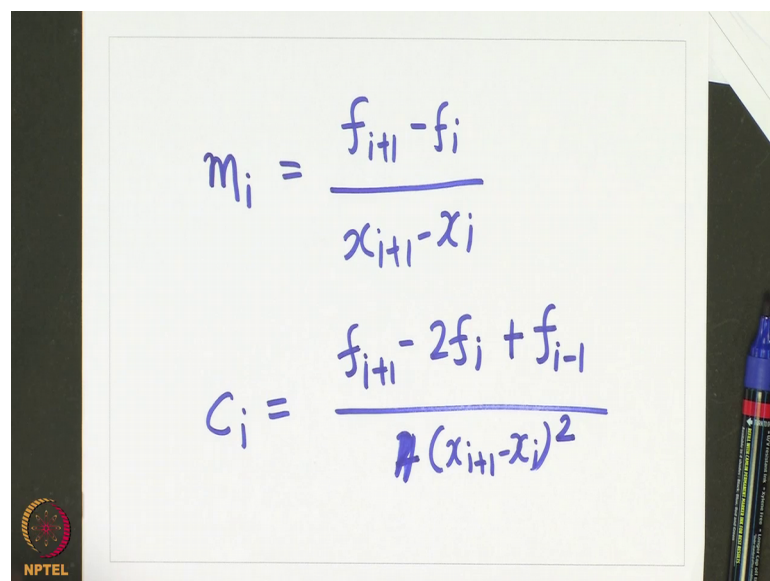 m_i = (f_{i+1} - f_i) / (x_{i+1} - x_i)
c_i = (f_{i+1} - 2f_i + f_{i-1}) / (x_{i+1} - x_i)^2
NPTEL